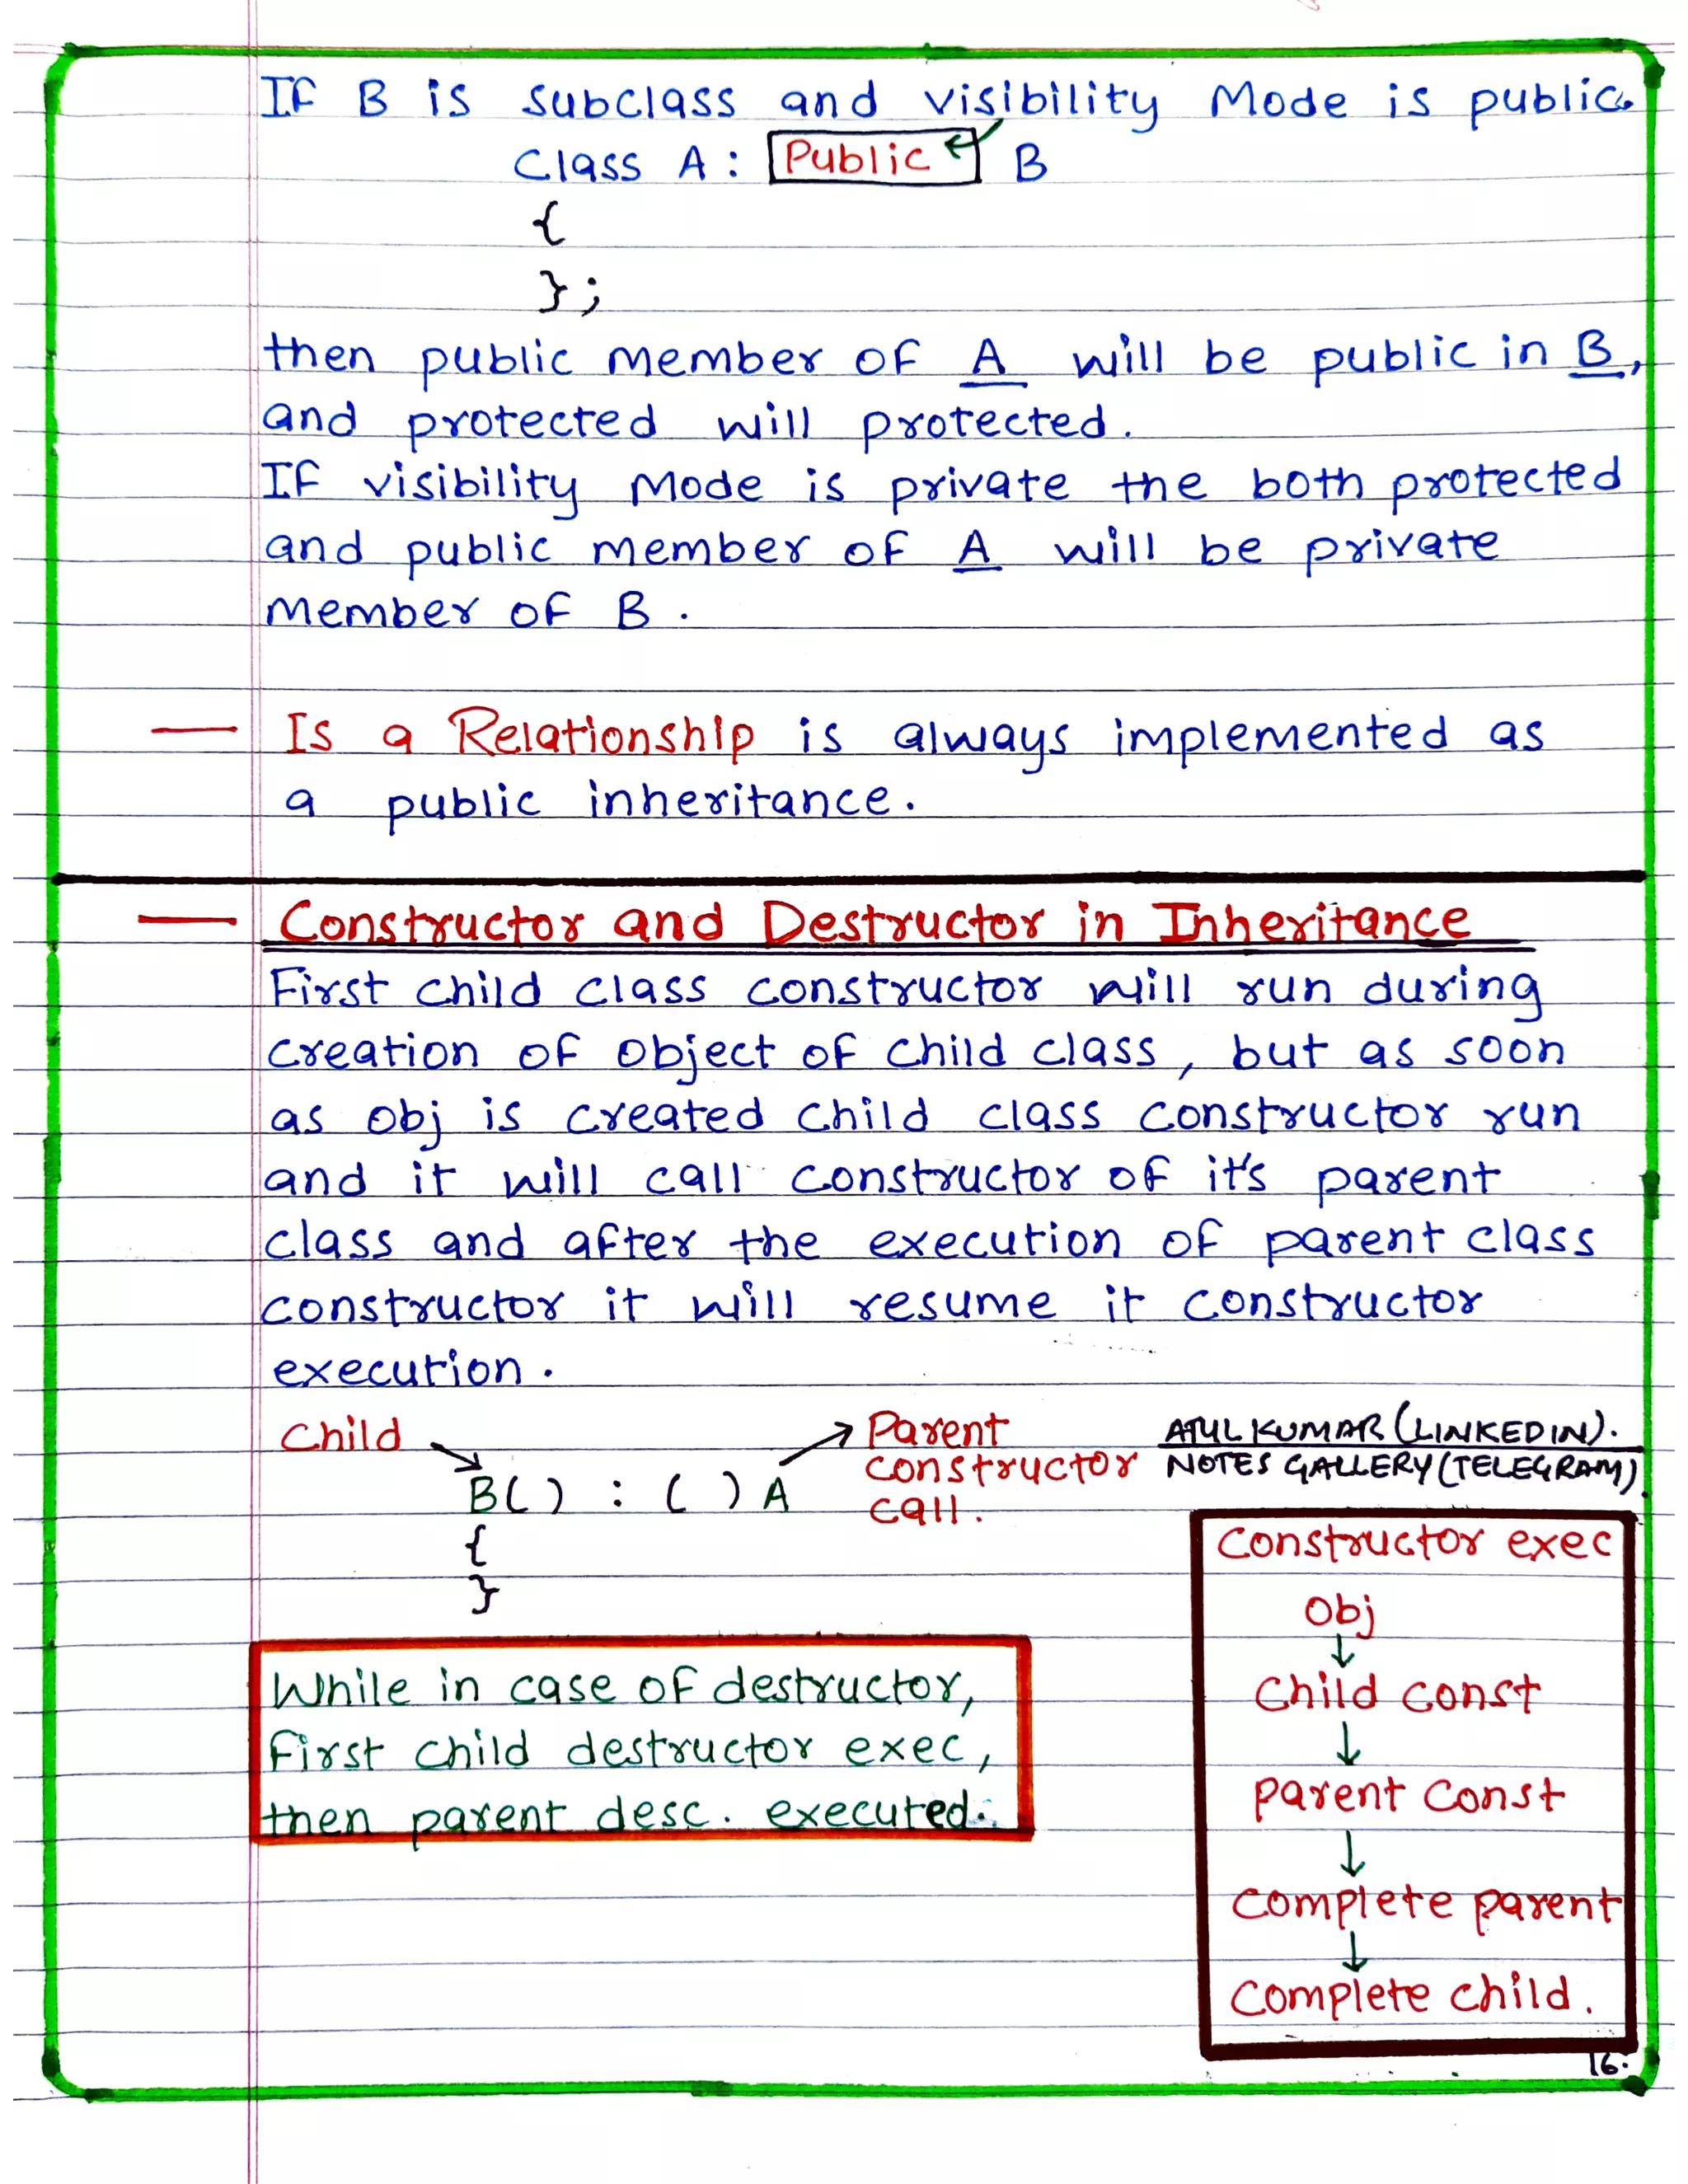 If B is subclass and visibility Mode is public.
Class A : Public B
{
};
then public member of A will be public in B,
and protected will protected.
If visibility Mode is private the both protected
and public member of A will be private
member of B.
— Is a Relationship is always implemented as
a public inheritance.
— Constructor and Destructor in Inheritance
First child class constructor will run during
creation of object of child class, but as soon
as obj is created child class constructor run
and it will call constructor of it's parent
class and after the execution of parent class
constructor it will resume it constructor
execution.
Child
B( ) : ( ) A
{
}
Parent
constructor
call.
ATUL KUMAR (LINKEDIN).
NOTES GALLERY (TELEGRAM)
While in case of destructor,
First child destructor exec,
then parent desc. executed.
Constructor exec
Obj
↓
Child const
↓
Parent Const
↓
Complete parent
↓
Complete child.
16.